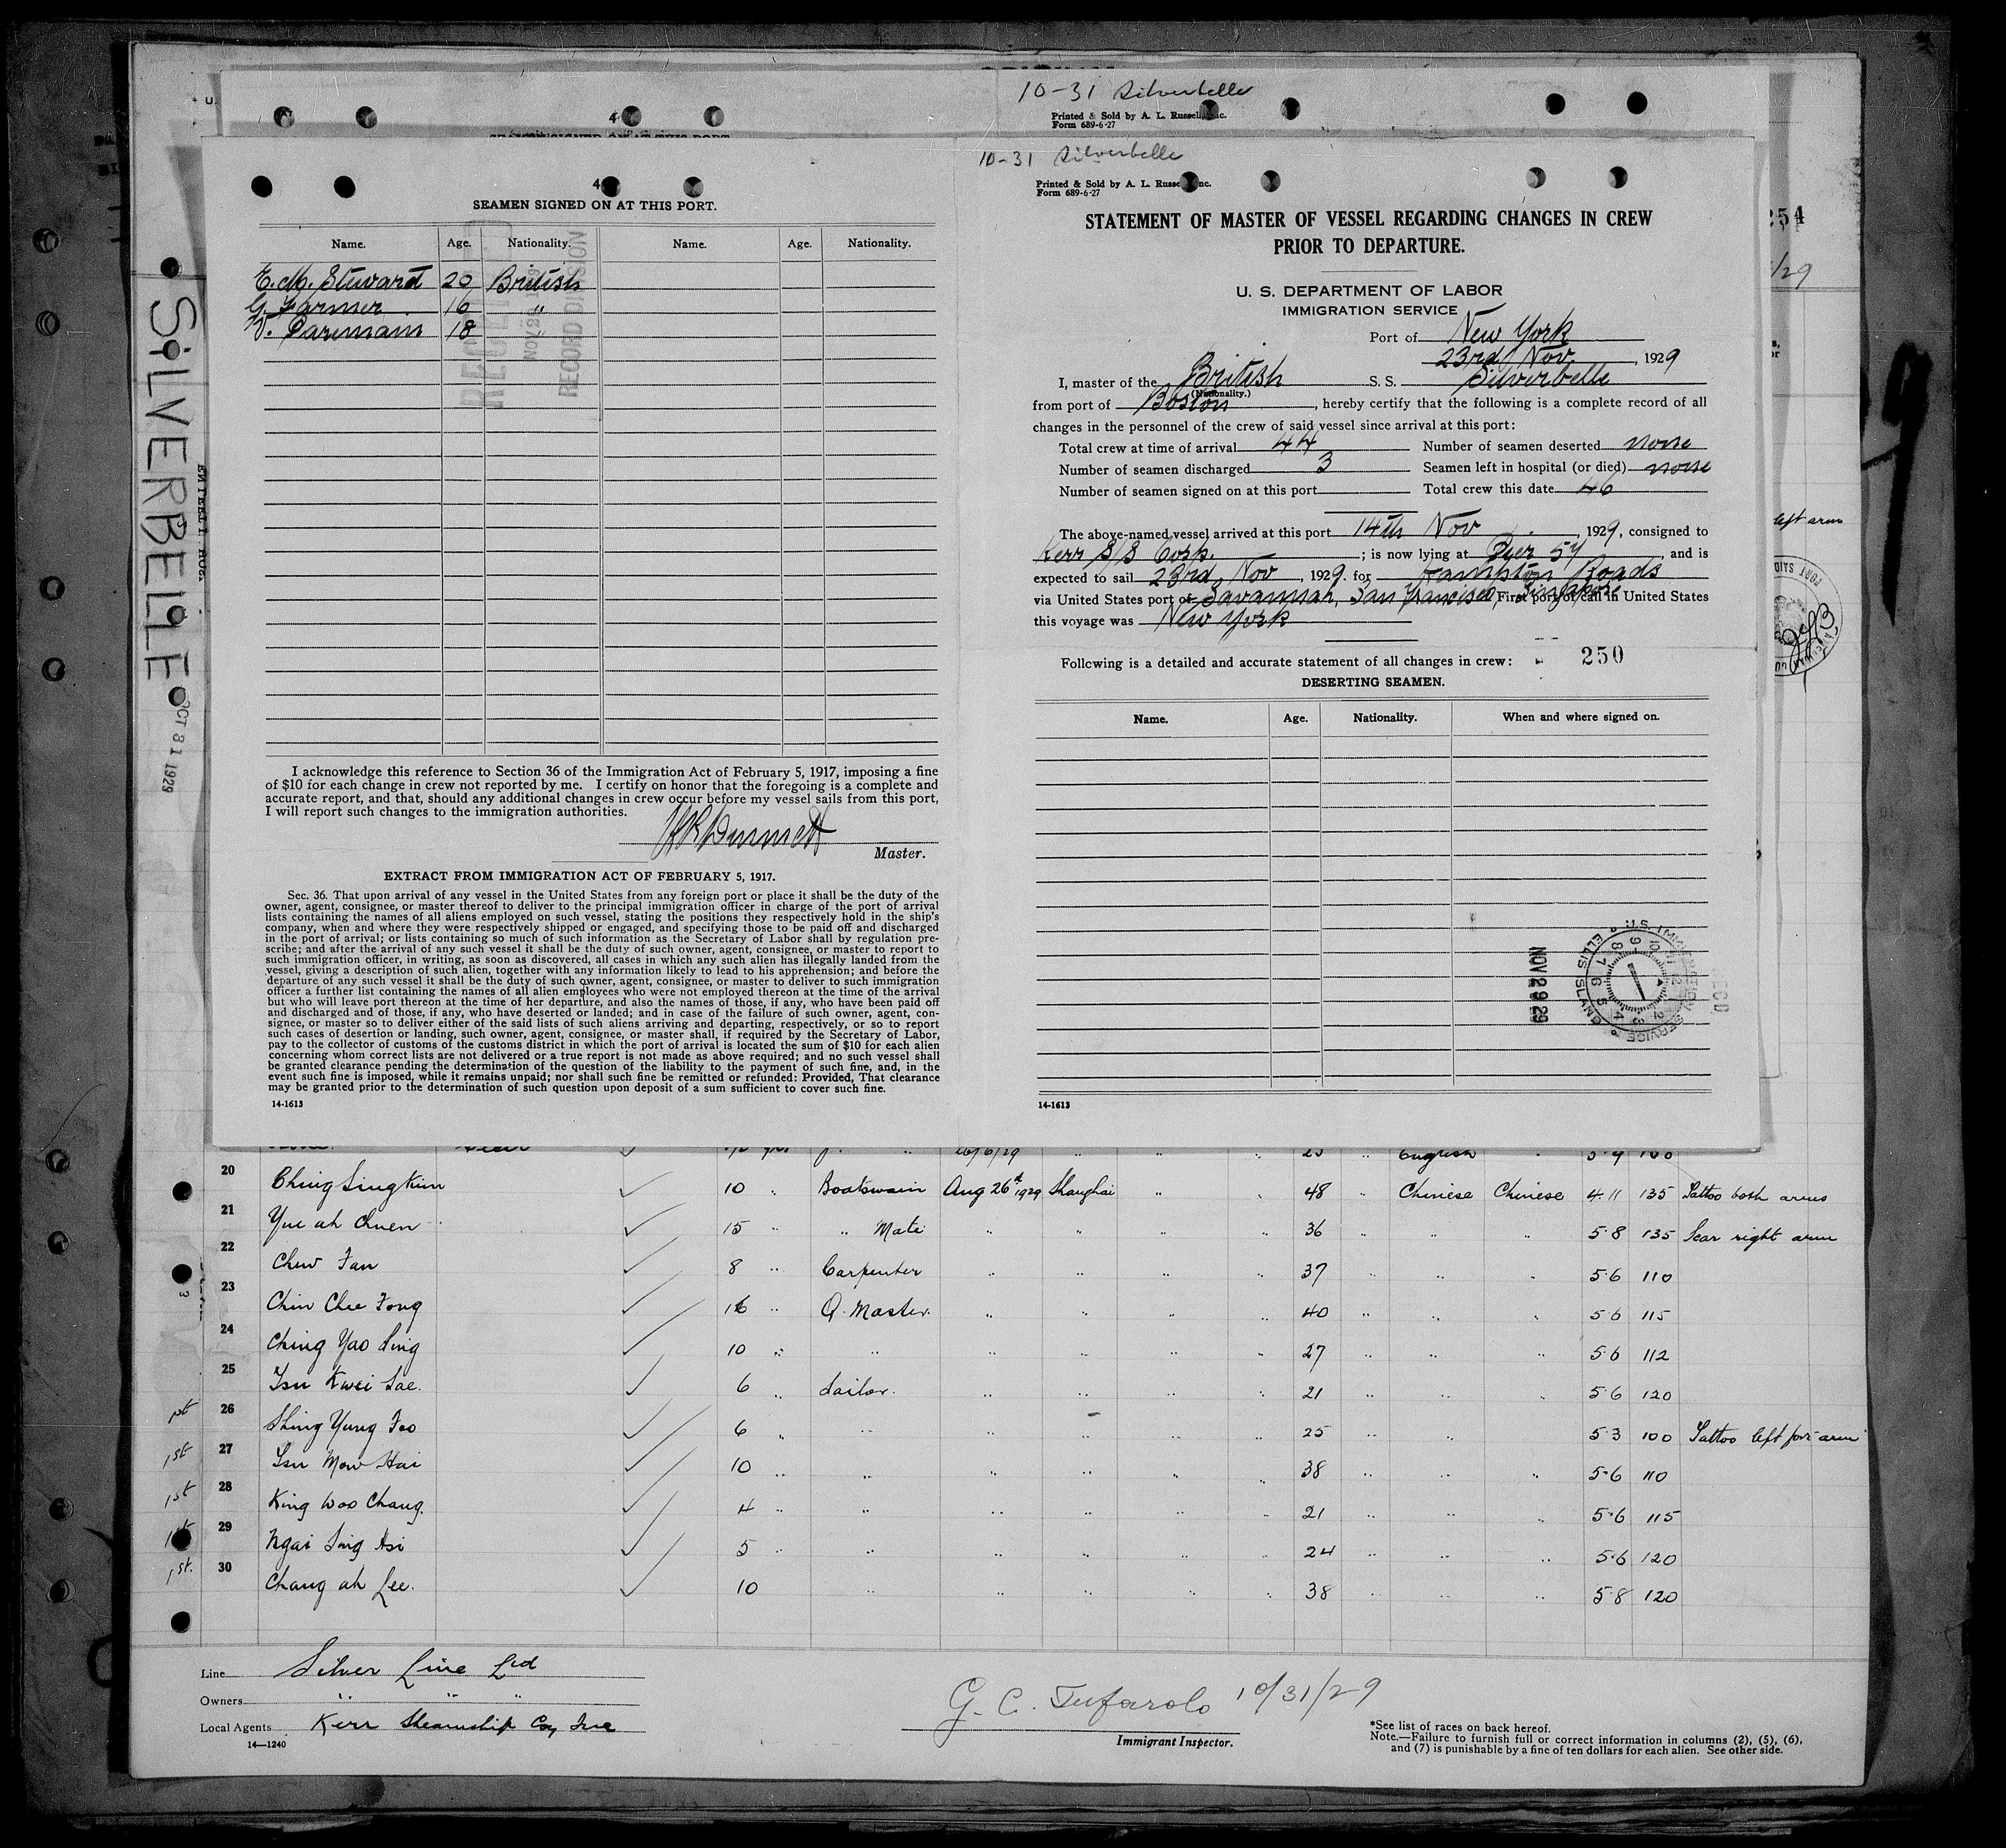 10-31 Silverbelle
Printed & Sold by A. L. Russell, Inc.
Form 689-6-27
SILVERBELLE
OCT 31 1929
254
left arm
4
SEAMEN SIGNED ON AT THIS PORT.
Name. Age. Nationality. Name. Age. Nationality.
E. M. Steward 20 British
G. Farmer 16 "
V. Paremain 18 "
RECEIVED
NOV 29 19
RECORD DIVISION
I acknowledge this reference to Section 36 of the Immigration Act of February 5, 1917, imposing a fine
of $10 for each change in crew not reported by me. I certify on honor that the foregoing is a complete and
accurate report, and that, should any additional changes in crew occur before my vessel sails from this port,
I will report such changes to the immigration authorities.
Master.
EXTRACT FROM IMMIGRATION ACT OF FEBRUARY 5, 1917.
Sec. 36. That upon arrival of any vessel in the United States from any foreign port or place it shall be the duty of the
owner, agent, consignee, or master thereof to deliver to the principal immigration officer in charge of the port of arrival
lists containing the names of all aliens employed on such vessel, stating the positions they respectively hold in the ship's
company, when and where they were respectively shipped or engaged, and specifying those to be paid off and discharged
in the port of arrival; or lists containing so much of such information as the Secretary of Labor shall by regulation pre-
scribe; and after the arrival of any such vessel it shall be the duty of such owner, agent, consignee, or master to report to
such immigration officer, in writing, as soon as discovered, all cases in which any such alien has illegally landed from the
vessel, giving a description of such alien, together with any information likely to lead to his apprehension; and before the
departure of any such vessel it shall be the duty of such owner, agent, consignee, or master to deliver to such immigration
officer a further list containing the names of all alien employees who were not employed thereon at the time of the arrival
but who will leave port thereon at the time of her departure, and also the names of those, if any, who have been paid off
and discharged and of those, if any, who have deserted or landed; and in case of the failure of such owner, agent, con-
signee, or master so to deliver either of the said lists of such aliens arriving and departing, respectively, or so to report
such cases of desertion or landing, such owner, agent, consignee, or master shall, if required by the Secretary of Labor,
pay to the collector of customs of the customs district in which the port of arrival is located the sum of $10 for each alien
concerning whom correct lists are not delivered or a true report is not made as above required; and no such vessel shall
be granted clearance pending the determination of the question of the liability to the payment of such fine, and, in the
event such fine is imposed, while it remains unpaid; nor shall such fine be remitted or refunded: Provided, That clearance
may be granted prior to the determination of such question upon deposit of a sum sufficient to cover such fine.
14-1613
10-31 Silverbelle
Printed & Sold by A. L. Russell, Inc.
Form 689-6-27
STATEMENT OF MASTER OF VESSEL REGARDING CHANGES IN CREW
PRIOR TO DEPARTURE.
U. S. DEPARTMENT OF LABOR
IMMIGRATION SERVICE
Port of New York
23rd Nov. , 1929
I, master of the British S. S. Silverbelle
(Nationality.)
from port of Boston , hereby certify that the following is a complete record of all
changes in the personnel of the crew of said vessel since arrival at this port:
Total crew at time of arrival 44 Number of seamen deserted none
Number of seamen discharged 3 Seamen left in hospital (or died) none
Number of seamen signed on at this port Total crew this date 46
The above-named vessel arrived at this port 14th Nov , 1929, consigned to
Kerr S/S Corp. ; is now lying at Pier 57 , and is
expected to sail 23rd Nov , 1929. for Hampton Roads
via United States port of Savannah, San Francisco, Singapore First port of call in United States
this voyage was New York
Following is a detailed and accurate statement of all changes in crew: 250
DESERTING SEAMEN.
Name. Age. Nationality. When and where signed on.
NOV 29 29
U.S. IMMIGRATION SERVICE ELLIS ISLAND
REC'D
14-1613
26/6/29 " " " 25 English " 5 9 160
20 Ching Sing Kum 10 " Boatswain Aug 26th 1929 Shanghai " " 48 " Chinese Chinese 4.11 135 Tattoo both arms
21 Yue ah Chuen 15 " " Mate " " " " 36 " " " 5.8 135 Scar right arm
22 Chew Fan 8 " Carpenter " " " " 37 " " " 5.6 110
23 Chin Chee Fong 16 " Q. Master " " " " 40 " " " 5.6 115
24 Ching Yao Sing 10 " " " " " " 27 " " " 5.6 112
25 Tsu Kwei Sae. 6 " Sailor. " " " " 21 " " " 5.6 120
26 Shing Yung Foo 6 " " " " " " 25 " " " 5.3 100 Tattoo left fore-arm
1st 27 Tsu Mow Hai 10 " " " " " " 38 " " " 5.6 110
1st 28 King Woo Chang. 4 " " " " " " 21 " " " 5.6 115
1st 29 Ngai Sing Hsi 5 " " " " " " 24 " " " 5.6 120
1st. 30 Chang ah Lee. 10 " " " " " 38 " " " 5.8 120
Line Silver Line Ltd
Owners " " "
Local Agents Kerr Steamship Coy Inc
14—1240
G. C. Tufarolo 10/31/29
Immigrant Inspector.
*See list of races on back hereof.
Note.—Failure to furnish full or correct information in columns (2), (5), (6),
and (7) is punishable by a fine of ten dollars for each alien. See other side.